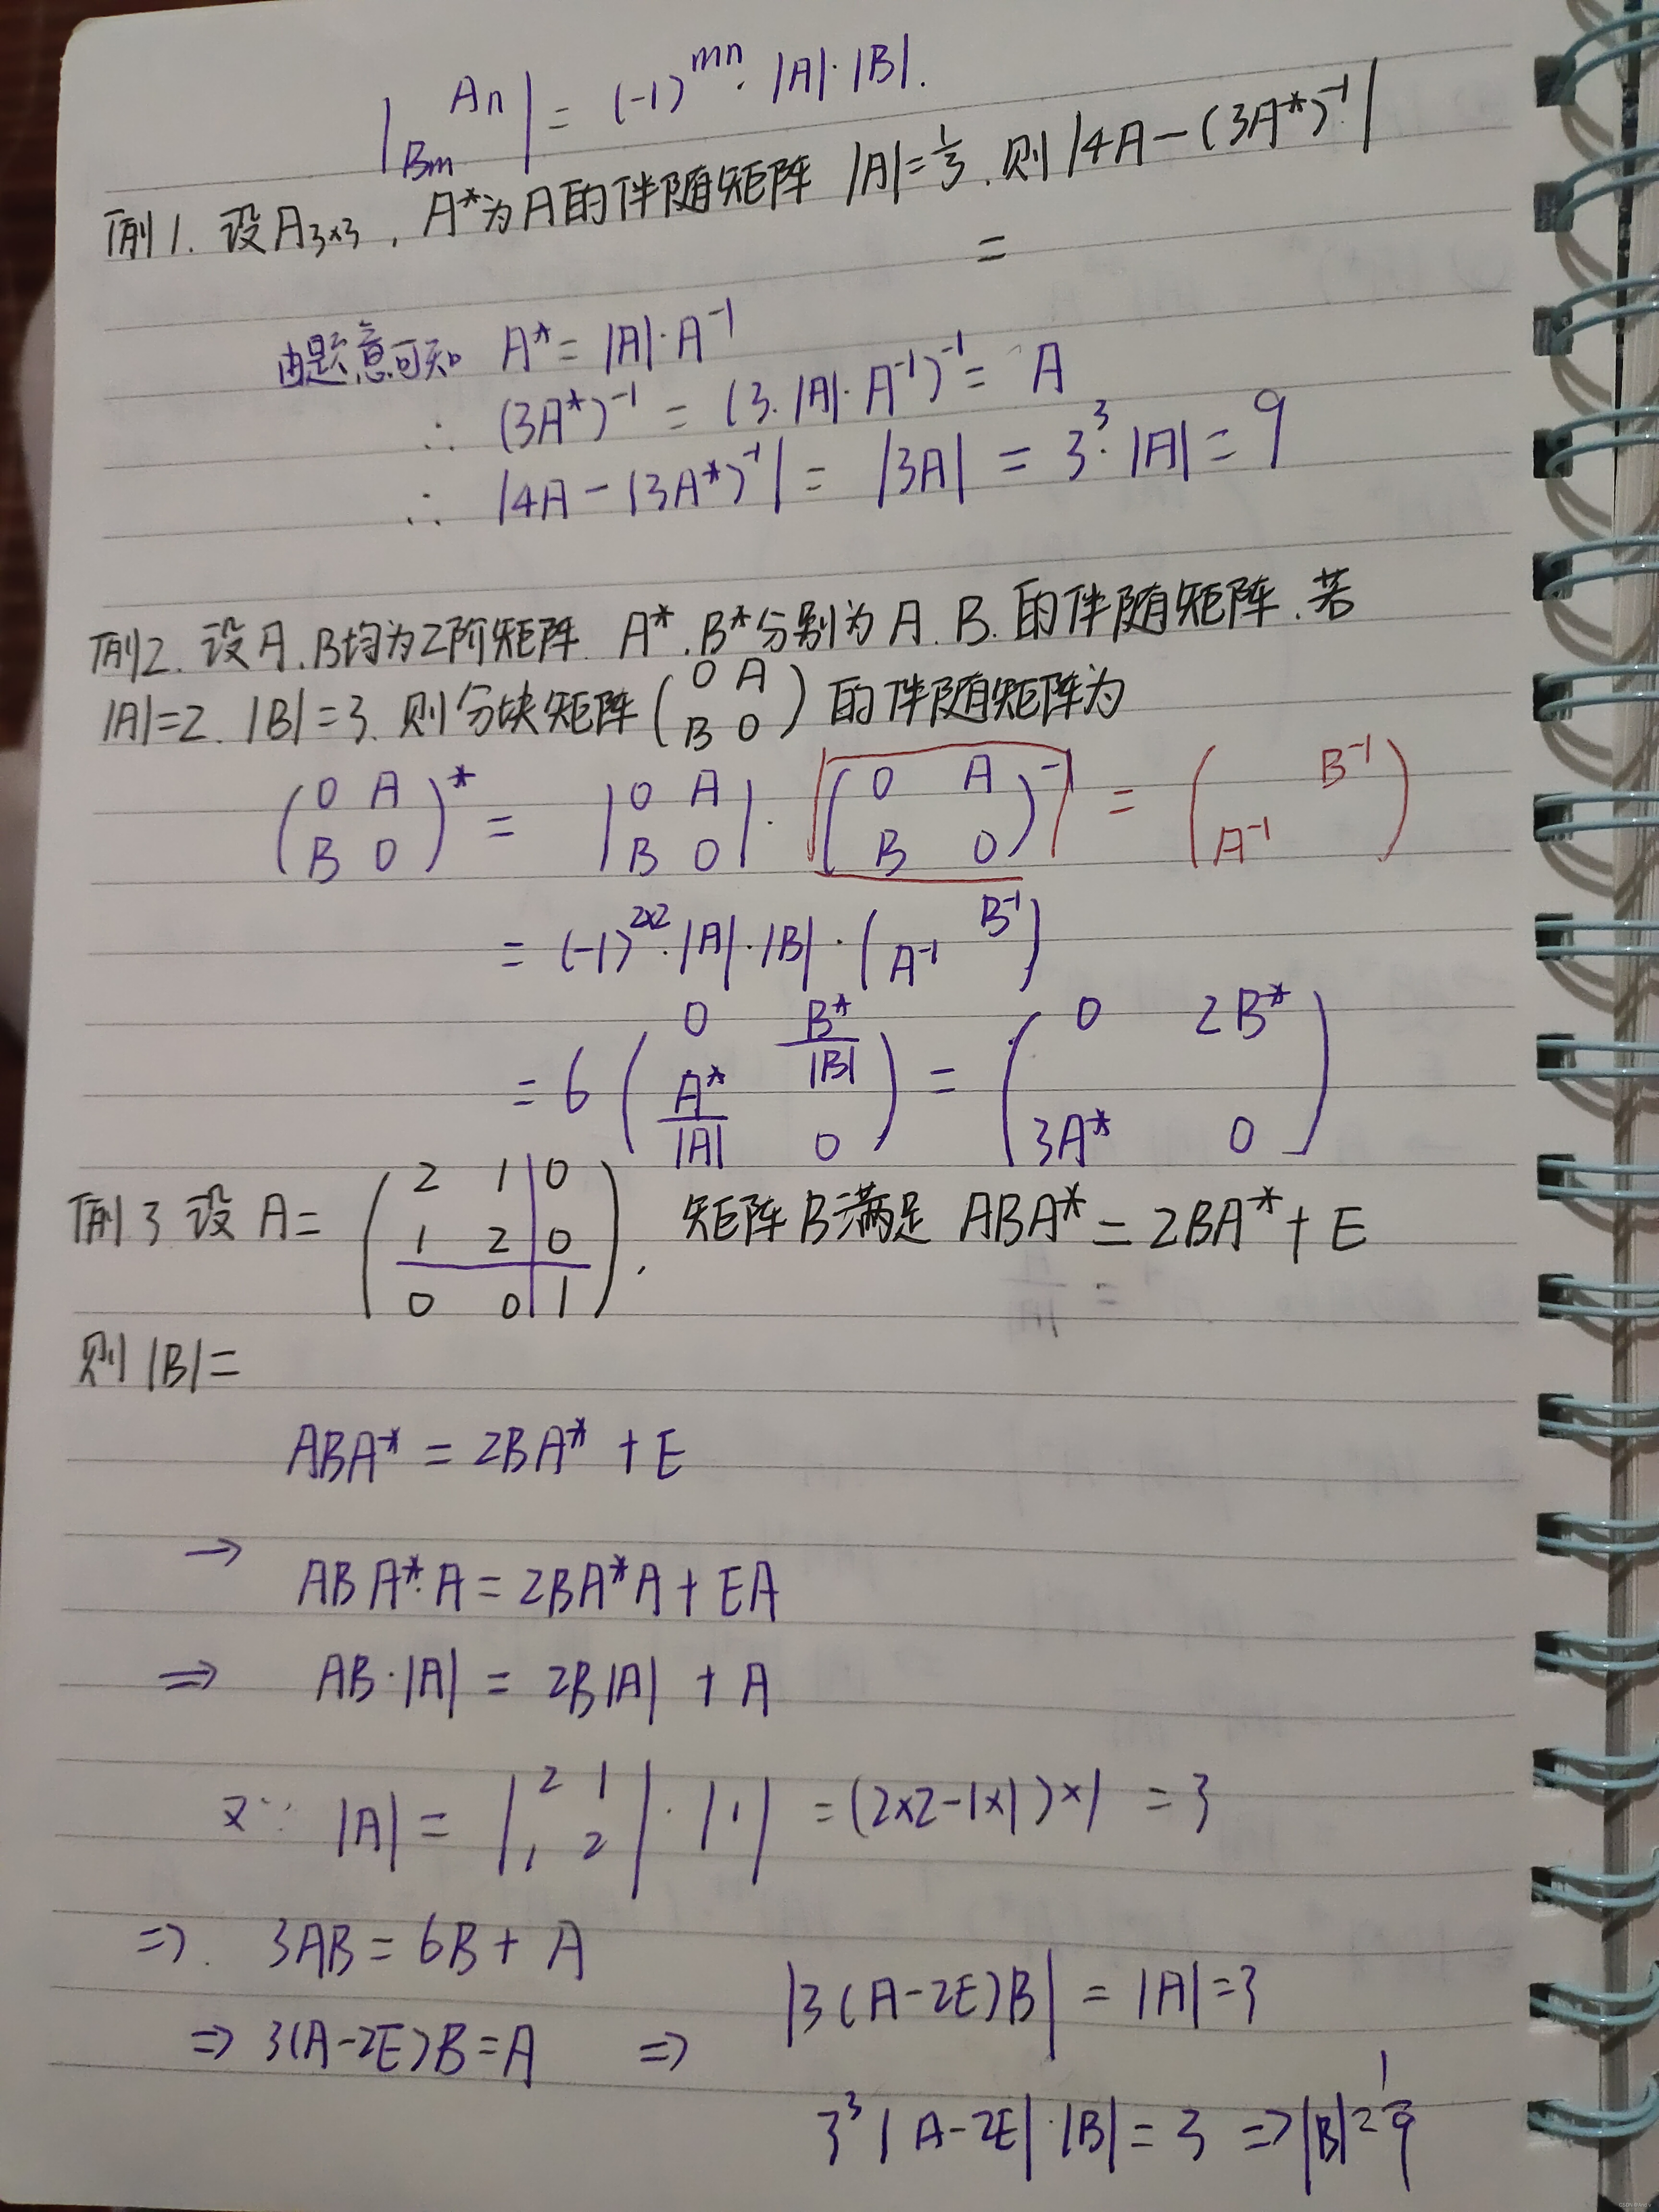 | An
Bm | = (-1)^mn · |A|·|B|.
例1. 设A3×3 , A*为A的伴随矩阵 |A|=1/3 . 则 |4A-(3A*)^-1|
=
由题意可知 A* = |A|·A^-1
∴ (3A*)^-1 = (3·|A|·A^-1)^-1 = A
∴ |4A-(3A*)^-1| = |3A| = 3^3·|A| = 9
例2. 设A.B均为2阶矩阵. A*.B*分别为A.B.的伴随矩阵.若
|A|=2. |B|=3. 则分块矩阵 (0 A
B 0) 的伴随矩阵为
(0 A
B 0)* = |0 A
B 0| · (0 A
B 0)^-1 = ( B^-1
A^-1 )
= (-1)^2×2·|A|·|B|·( B^-1
A^-1 )
= 6 (0 B*/|B|
A*/|A| 0) = (0 2B*
3A* 0)
例3 设 A = (2 1 0
1 2 0
0 0 1) . 矩阵B满足 ABA* = 2BA* + E
则 |B| =
ABA* = 2BA* + E
→ ABA*·A = 2BA*A + EA
⇒ AB·|A| = 2B|A| + A
又∵ |A| = |2 1
1 2| · |1| = (2×2-1×1)×1 = 3
⇒. 3AB = 6B + A
⇒ 3(A-2E)B = A ⇒ |3(A-2E)B| = |A| = 3
3^3 |A-2E|·|B| = 3 ⇒ |B| = 1/9